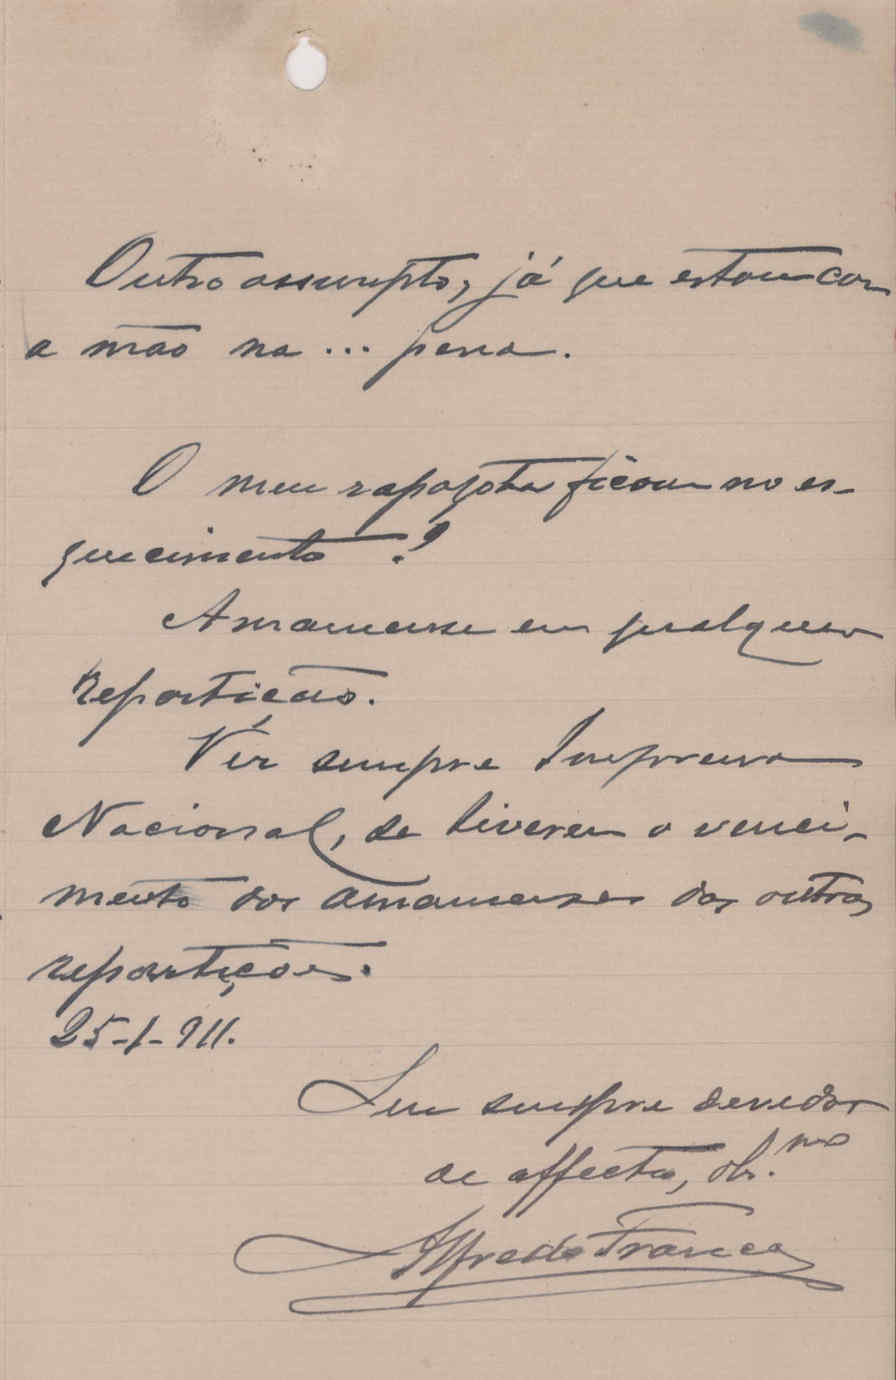 Outro assumpto, já que estou com
a mão na ... pena.
O meu rapazote ficou no es-
quecimento?
Amanuense em qualquer
repartição.
Vêr sempre Imprensa
Nacional, se tiverem o venci-
mento dos amanuenses das outras
repartições.
25-1-911.
Seu sempre devedor
de affecto, obr.mo
Alfredo França